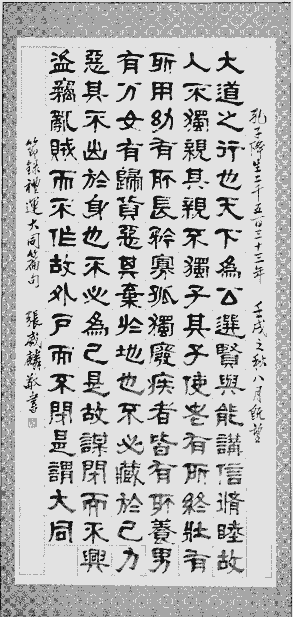 孔子降生二千五百三十三年 壬戌之秋八月既望
大道之行也天下為公選賢與能講信脩睦故
人不獨親其親不獨子其子使老有所終壯有
所用幼有所長矜寡孤獨廢疾者皆有所養男
有分女有歸貨惡其棄於地也不必藏於己力
惡其不出於身也不必為己是故謀閉而不興
盜竊亂賊而不作故外戶而不閉是謂大同
節錄禮運大同篇句 張麟敬書